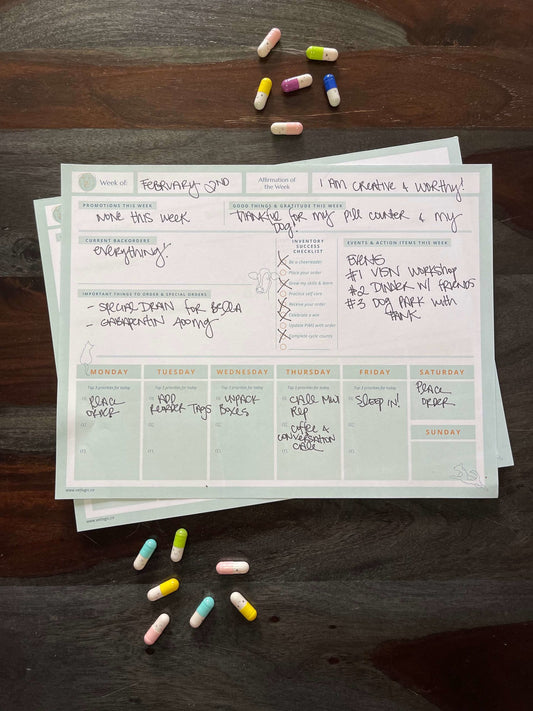 Week of:
FEBRUARY 2ND
Affirmation of
the Week
I AM CREATIVE & WORTHY!
PROMOTIONS THIS WEEK
NONE THIS WEEK
GOOD THINGS & GRATITUDE THIS WEEK
THANKFUL FOR MY PILL COUNTER & MY
DOG!
CURRENT BACKORDERS
EVERYTHING!
INVENTORY
SUCCESS
CHECKLIST
Be a cheerleader
Place your order
Grow my skills & learn
Practice self care
Receive your order
Celebrate a win
Update PIMS with order
Complete cycle counts
EVENTS & ACTION ITEMS THIS WEEK
EVENTS
#1 VISN WORKSHOP
#2 DINNER W/ FRIENDS
#3 DOG PARK WITH
TANK
IMPORTANT THINGS TO ORDER & SPECIAL ORDERS
- SPECIAL DRAIN FOR BELLA
- GABAPENTIN 400mg
MONDAY
Top 3 priorities for today
#1
PLACE
ORDER
#2
#3
TUESDAY
Top 3 priorities for today
#1
ADD
REORDER TAGS
#2
#3
WEDNESDAY
Top 3 priorities for today
#1
UNPACK
BOXES
#2
#3
THURSDAY
Top 3 priorities for today
#1
CALL MWI
REP
#2
COFFEE &
CONVERSATION
CALL
#3
FRIDAY
Top 3 priorities for today
#1
SLEEP IN!
#2
#3
SATURDAY
PLACE
ORDER
SUNDAY
www.vetlogic.co